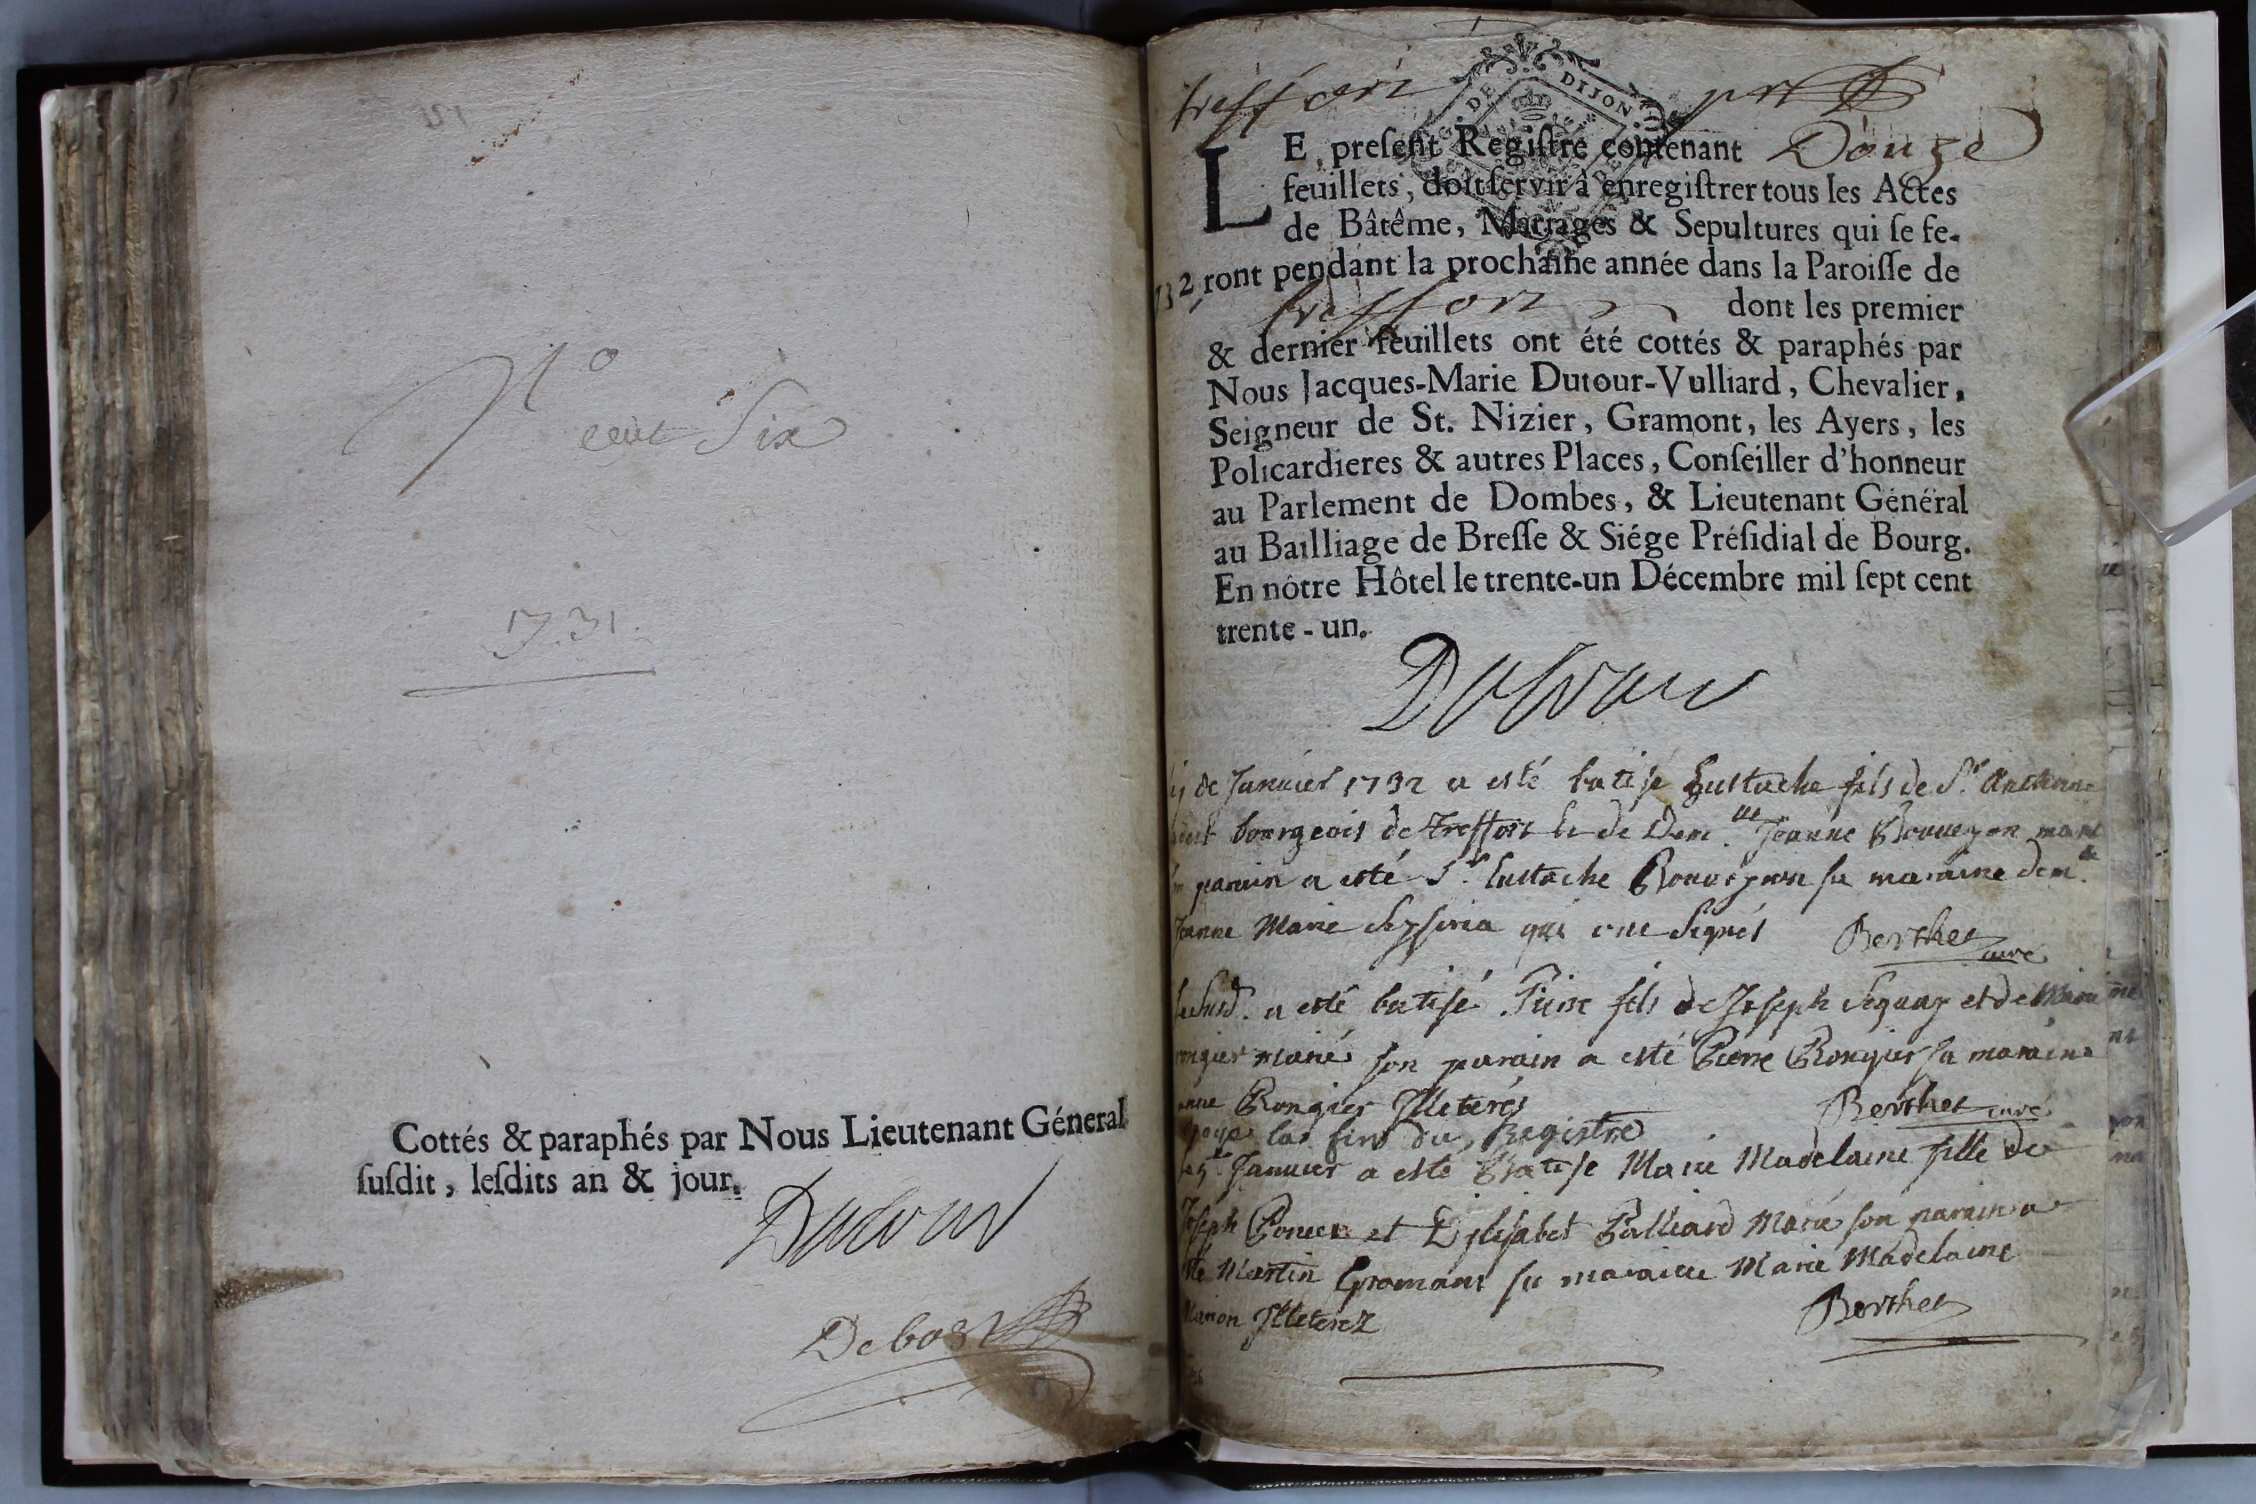 N°
cent Six
1731.
Cottés & paraphés par Nous Lieutenant Géneral
ſuſdit, leſdits an & jour.
Dutour
Debost
treffort
DE DIJON
LE preſent Regiſtre contenant Douze
feuillets, doit ſervir â enregiſtrer tous les Actes
de Bâtême, Mariages & Sepultures qui ſe fe-
ront pendant la prochaine année dans la Paroiſſe de
treffort dont les premier
& dernier feuillets ont été cottés & paraphés par
Nous Jacques-Marie Dutour-Vulliard, Chevalier,
Seigneur de St. Nizier, Gramont, les Ayers, les
Policardieres & autres Places, Conſeiller d'honneur
au Parlement de Dombes, & Lieutenant Général
au Bailliage de Breſſe & Siége Préſidial de Bourg.
En nôtre Hôtel le trente-un Décembre mil ſept cent
trente-un.
Dutour
de Janvier 1732 a esté batisé Eustache fils de Sr. Anthoine
bourgeois de Treffort et de Dem.lle Jeanne
parain a esté Sr. Eustache sa maraine dem.lle
Jeanne Marie qui ont signés Berthet curé
a esté batisé Pierre fils de Joseph et de Marie
mariés son parain a esté Pierre Rongier sa maraine
Rongier Illeterés Berthet curé
la fin du Registre
Janvier a esté Batisé Marie Madelaine fille de
Joseph et Elisabet mariés son parain a
esté Martin sa maraine Marie Madelaine
Illeterez Berthet